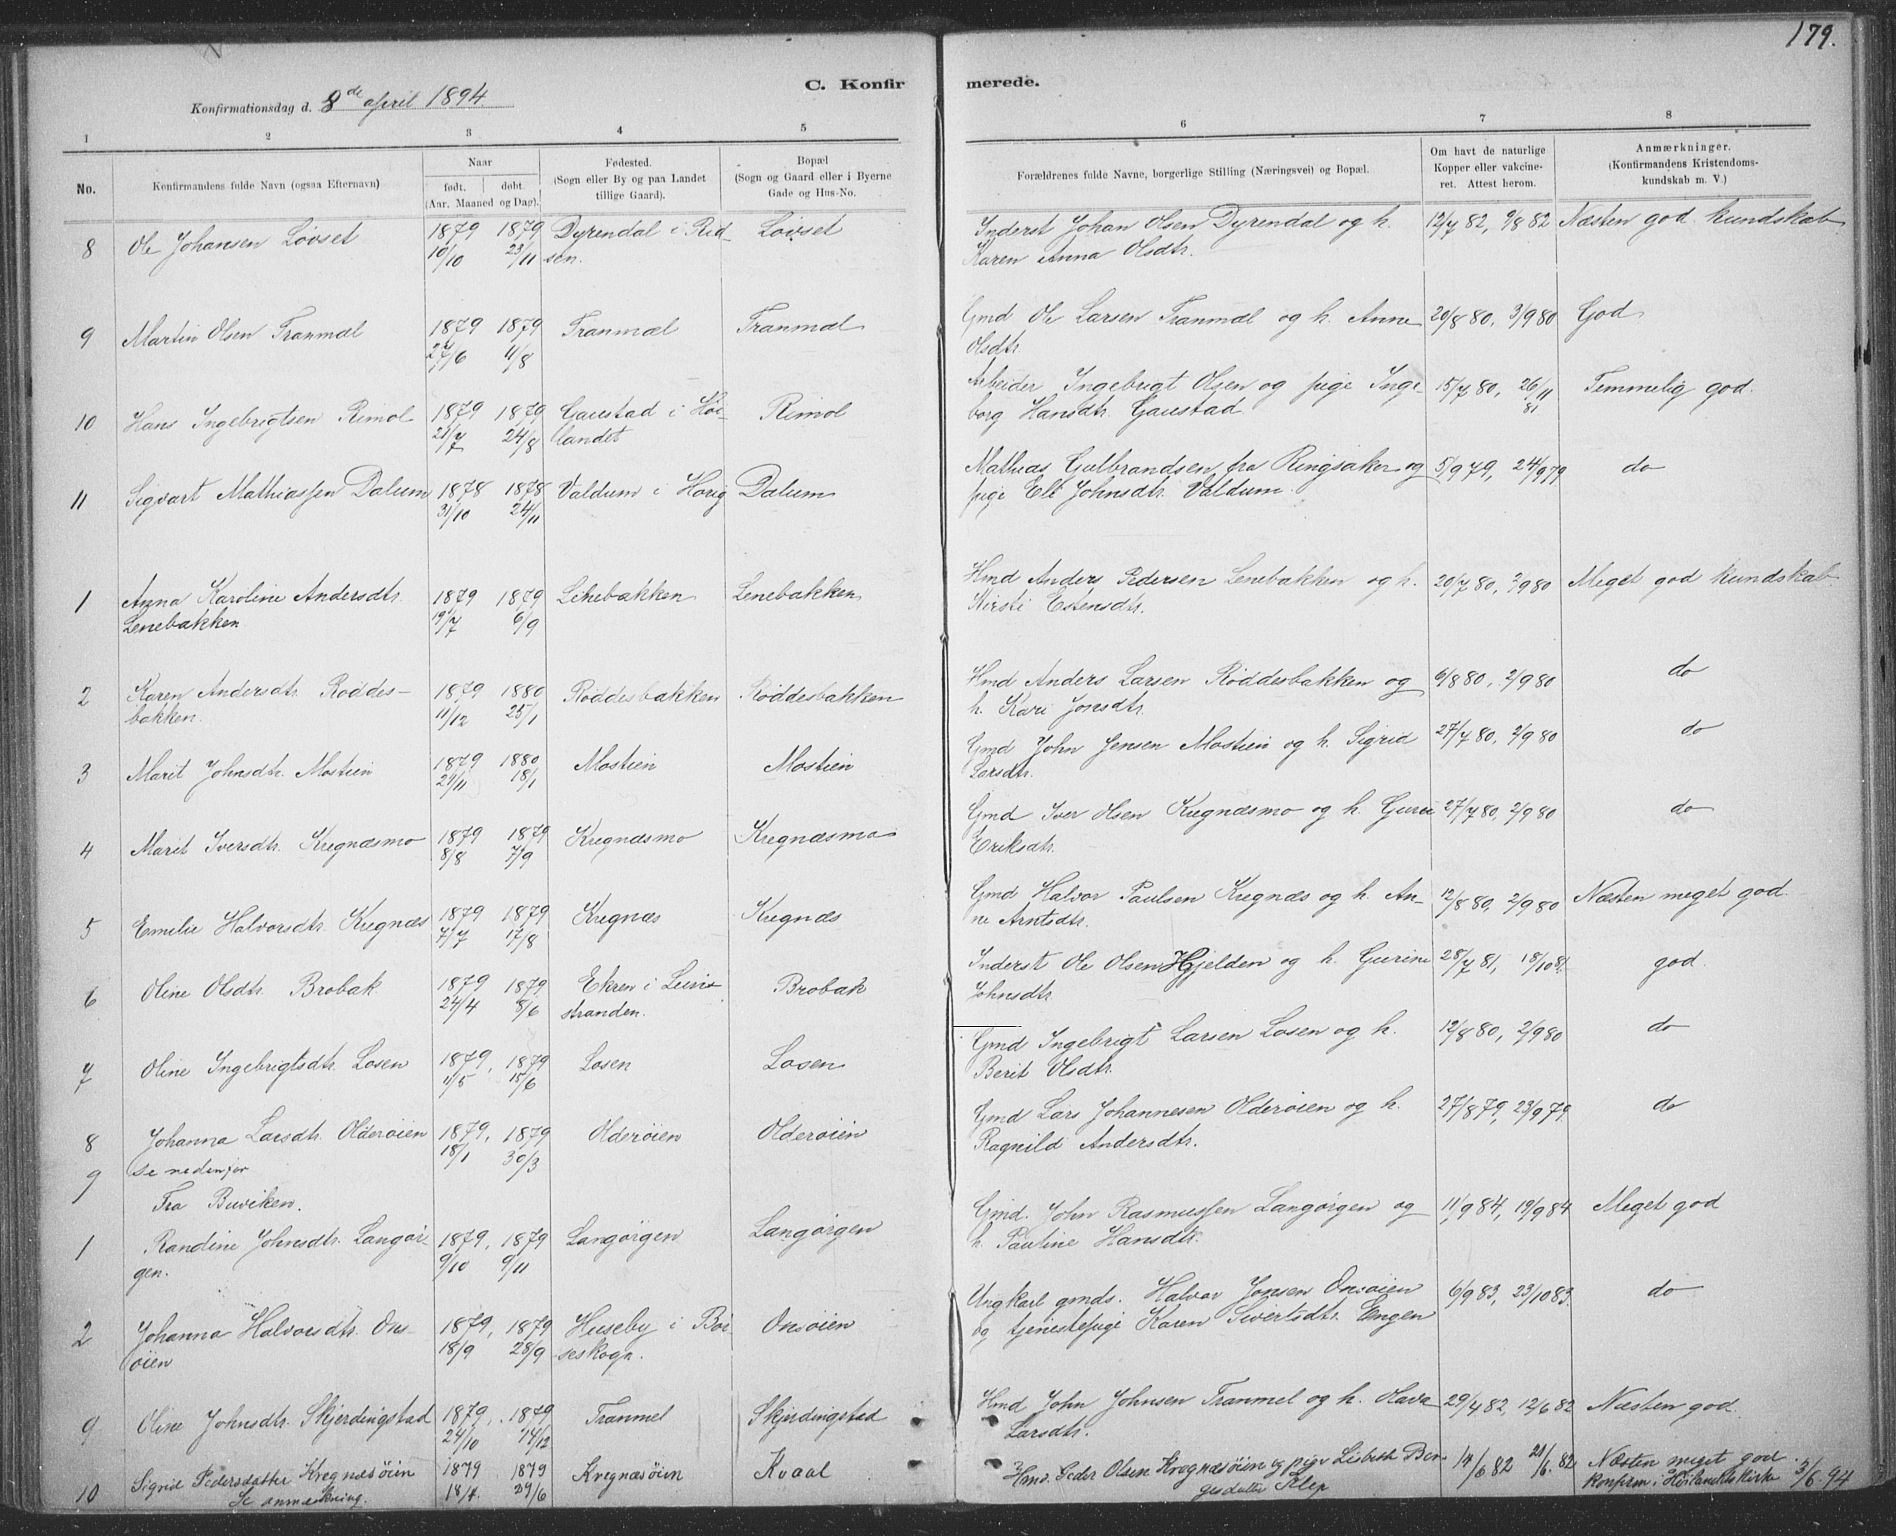 179.
C. Konfir merede.
Konfirmationsdag d. 8de april 1894
1 2 3 4 5 6 7 8
No. Konfirmandens fulde Navn (ogsaa Efternavn) Naar født. døbt. (Aar, Maaned og Dag). Fødested. (Sogn eller By og paa Landet tillige Gaard). Bopæl (Sogn og Gaard eller i Byerne Gade og Hus-No. Forældrenes fulde Navne, borgerlige Stilling (Næringsvei) og Bopæl. Om havt de naturlige Kopper eller vakcineret. Attest herom. Anmærkninger. (Konfirmandens Kristendomskundskab m. V.)
8 Ole Johansen Løvset 1879 1879 Dyrendal i Rid- Løvset Inderst Johan Olsen Dyrendal og h. 12/7 82, 9/8 82 Næsten god kundskab
10/10 23/11 sen. Karen Anna Olsdtr.
9 Martin Olsen Tranmæl 1879 1879 Tranmæl Tranmæl Gmd Ole Larsen Tranmæl og h. Anne 20/8 80, 3/9 80 God
27/6 11/8 Olsdtr.
10 Hans Ingebrigtsen Rimol 1879 1879 Gaustad i Høi- Rimol Arbeider Ingebrigt Olsen og pige Inge- 15/7 80, 26/11 81 Temmelig god.
21/7 24/8 landet borg Hansdtr. Gaustad
11 Sigvart Mathiassen Dalum 1878 1878 Valdum i Horig Dalum Mathias Gulbrandsen fra Ringsaker og 5/9 79, 24/9 79 do
31/10 24/11 pige Eli Johnsdtr. Valdum.
1 Anna Karoline Andersdtr. 1879 1879 Lenebakken Lenebakken Hmd Anders Pedersen Lenebakken og h. 20/7 80, 2/9 80 Meget god kundskab
Lenebakken 19/7 6/9 Kirsti Estensdtr.
2 Karen Andersdtr. Røddes- 1879 1880 Røddesbakken Røddesbakken Hmd Anders Larsen Røddesbakken og 6/8 80, 2/9 80 do
bakken. 11/12 25/1 h. Kari Jonsdtr.
3 Marit Johnsdtr. Mostien 1879 1880 Mostien Mostien Gmd John Jensen Mostien og h. Sigrid 27/7 80, 2/9 80 do
21/11 18/1 Larsdtr.
4 Marit Iversdtr. Kregnæsmo 1879 1879 Kregnæsmo Kregnæsmo Gmd Iver Olsen Kregnæsmo og h. Guru 27/7 80, 2/9 80 do
8/8 7/9 Eriksdtr.
5 Emelie Halvorsdtr. Kregnæs 1879 1879 Kregnæs Kregnæs Gmd Halvor Paulsen Kregnæs og h. An- 12/8 80, 2/9 80 Næsten meget god.
7/7 17/8 ne Arntsdtr.
6 Oline Olsdtr. Brobak 1879 1879 Ekren i Lein- Brobak Inderst Ole Olsen Hjelden og h. Gurine 28/7 81, 18/10 81. god.
24/4 8/6 stranden. Johnsdtr.
7 Oline Ingebrigtsdtr. Losen 1879, 1879 Losen Losen Gmd Ingebrigt Larsen Losen og h. 12/8 80, 2/9 80 do
11/5 15/6 Berit Olsdtr.
8 Johanna Larsdtr. Olderøien 1879, 1879 Olderøien Olderøien Gmd Lars Johannesen Olderøien og h. 27/8 79, 23/9 79. do
18/1 30/3 Ragnild Andersdtr.
9 se nedenfor
Fra Buviken.
1 Randine Johnsdtr. Langør- 1879, 1879 Langørgen Langørgen Gmd. John Rasmussen Langørgen og 11/9 84, 19/9 84 Meget god
gen. 9/10 9/11 h. Pauline Hansdtr.
2 Johanna Halvorsdtr. Ons- 1879, 1879 Huseby i Bør- Onsøien Ungkarl gmds. Halvor Jonsen Onsøien 6/9 83, 23/10 83. do
øien 18/9 28/9 seskogn. og tjenestepige Karen Sivertsdtr. Engen
9 Oline Johnsdtr. Skjerdingstad 1879, 1879, Tranmel Skjerdingstad Hmd John Johnsen Tranmel og h. Olava 29/4 82, 12/6 82 Næsten god.
24/10 14/12 Larsdtr.
10 Sigrid Pedersdatter Kregnæsøien 1879 1879 Kregnæsøien Kvaal Hmd. Peder Olsen Kregnæsøien og pige Lisbeth Ben- 17/6 82 21/6. 82 Næsten meget god.
Se anmærkning. 18/4. 29/6 gtsdatter Klep konfirm i Høilandets kirke 3/6. 94